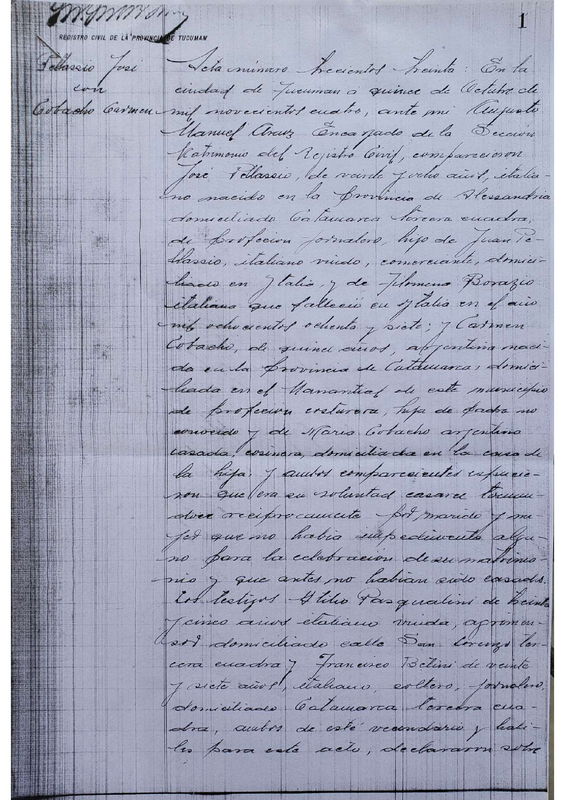 1
REGISTRO CIVIL DE LA PROVINCIA DE TUCUMAN
Pellassio José
con
Cobacho Carmen
Acta número trecientos treinta: En la
ciudad de Tucuman á quince de Octubre de
mil novecientos cuatro, ante mi Augusto
Manuel Araoz Encargado de la Seccion
Matrimonio del Registro Civil, comparecieron
José Pellassio, de veinte y ocho años, italia-
no nacido en la Provincia de Alessandria
domiciliado Catamarca tercera cuadra,
de profecion jornalero, hijo de Juan Pe-
llassio, italiano viudo, comerciante, domici-
liado en Italia y de Filomena Borazio
italiana que falleció en Italia en el año
mil ochocientos ochenta y siete; y Carmen
Cobacho, de quince años, argentina naci-
da en la Provincia de Catamarca, domici-
liada en el Manantial de este municipio
de profecion costurera, hija de padre no
conocido y de Maria Cobacho argentina
casada, cosinera, domiciliada en la casa de
la hija y ambos comparecientes
que era su voluntad casarse
reciprocamente por marido y mu-
jer que no habia impedimento algu-
no para la celebracion de su matrimo-
nio y que antes no habian sido casados.
Los testigos Atilio Pasqualini de treinta
y cinco años italiano viudo,
domiciliado calle San Lorenzo ter-
cera cuadra y Francisco Betini de veinte
y siete años, italiano, soltero, jornalero,
domiciliado Catamarca tercera cua-
dra, ambos de este vecindario y habi-
les para este acto, declararon sobre